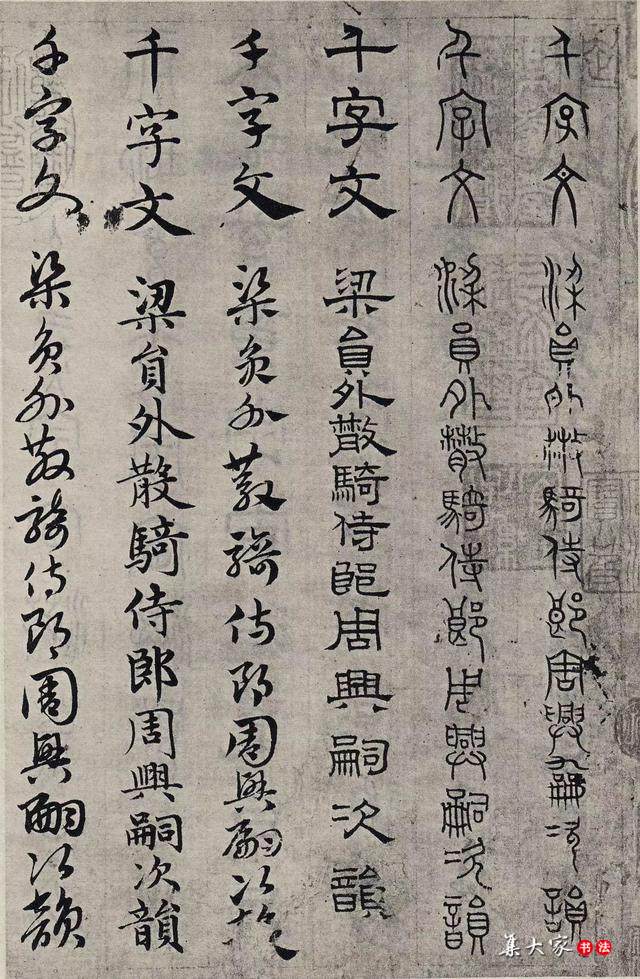 千字文 梁員外散騎侍郎周興嗣次韻
千字文 梁員外散騎侍郎周興嗣次韻
千字文 梁員外散騎侍郎周興嗣次韻
千字文 梁員外散騎侍郎周興嗣次韻
千字文 梁員外散騎侍郎周興嗣次韻
千字文 梁員外散騎侍郎周興嗣次韻
集大家书法